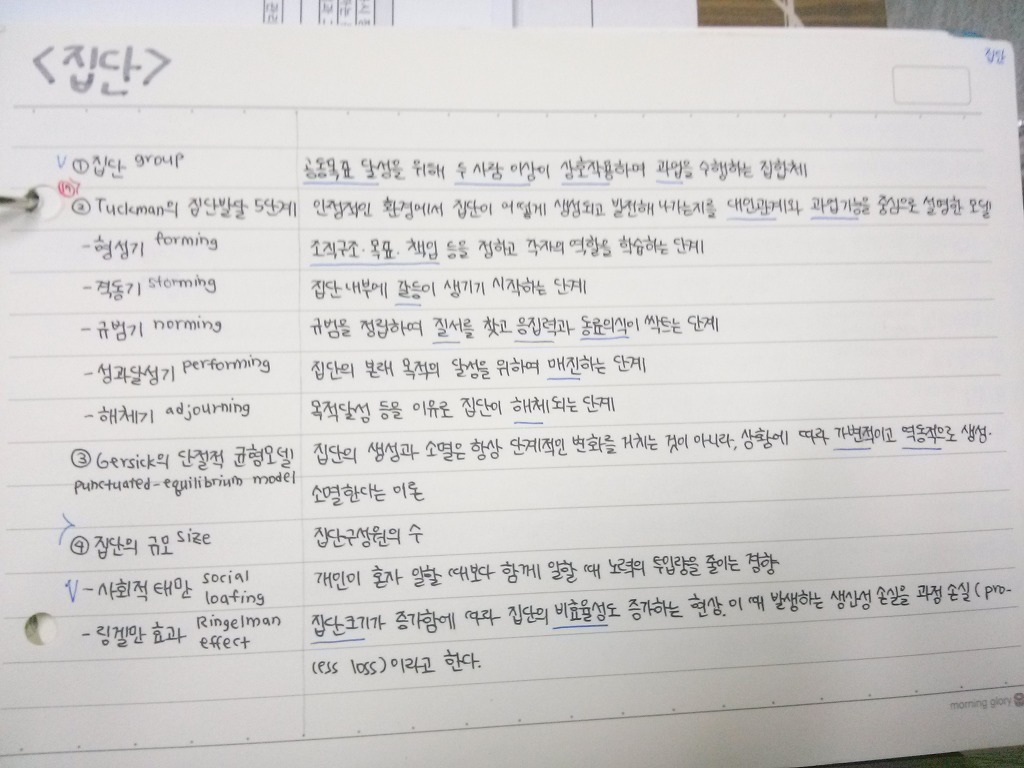 <집단>
집단
① 집단 group 공동목표 달성을 위해 두 사람 이상이 상호작용하며 과업을 수행하는 집합체
② Tuckman의 집단발달 5단계 안정적인 환경에서 집단이 어떻게 생성되고 발전해 나가는지를 대인관계와 과업기능을 중심으로 설명한 모델
- 형성기 forming 조직구조·목표·책임 등을 정하고 각자의 역할을 학습하는 단계
- 격동기 storming 집단 내부에 갈등이 생기기 시작하는 단계
- 규범기 norming 규범을 정립하여 질서를 찾고 응집력과 동료의식이 싹트는 단계
- 성과달성기 performing 집단의 본래 목적의 달성을 위하여 매진하는 단계
- 해체기 adjourning 목적달성 등을 이유로 집단이 해체되는 단계
③ Gersick의 단절적 균형모델 집단의 생성과 소멸은 항상 단계적인 변화를 거치는 것이 아니라, 상황에 따라 가변적이고 역동적으로 생성·
punctuated-equilibrium model 소멸한다는 이론
④ 집단의 규모 size 집단구성원의 수
- 사회적 태만 social loafing 개인이 혼자 일할 때보다 함께 일할 때 노력의 투입량을 줄이는 경향
- 링겔만 효과 Ringelman effect 집단크기가 증가함에 따라 집단의 비효율성도 증가하는 현상. 이 때 발생하는 생산성 손실을 과정 손실(pro-
cess loss)이라고 한다.
morning glory